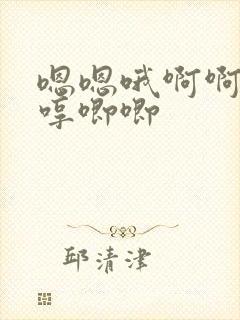 嗯嗯哦啊啊
哼唧唧
邱清津